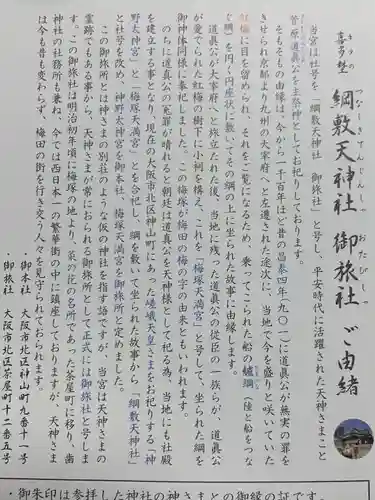 喜多埜 綱敷天神社 御旅社 ご由緒
きたの つなしきてんじんしゃ おたびしゃ
当宮は社号を「綱敷天神社 御旅社」と号し、平安時代に活躍された天神さまこと
菅原道真公を主祭神としてお祀りしております。
そもそもの由縁は、今から一千百年ほど昔の昌泰四年(九〇一)に道真公が無実の罪を
きせられ京都より九州の大宰府へと左遷された途次に、当地で今を盛りと咲いていた
紅梅に目を留められ、それをご覧になるため、乗ってこられた船の艫綱(陸と船をつな
ぐ綱)を円く円座状に敷いてその綱の上に坐られた故事に由縁します。
道真公が大宰府へと旅立たれた後、当地に残った道真公の従臣の一族らが、道真公
が愛でられた紅梅の樹下に小祠を構え、これを「梅塚天満宮」と号して、坐られた綱を
御神体同様に奉祀しました。この梅塚が梅田の梅の字の由来ともいわれます。
のちに道真公の冤罪が晴れると朝廷は道真公を天神様として祀る為、当地にも社殿
を建立する事となり、現在の大阪市北区神山町にあった嵯峨天皇さまをお祀りする「神
野太神宮」と「梅塚天満宮」とを合祀し、綱を敷いて坐られた故事から「綱敷天神社」
と社号を改め、神野太神宮を御本社、梅塚天満宮を御旅所と定めました。
この御旅所とは神さまの別荘のような仮の神社を指す語ですが、当宮は天神さまの
霊跡でもある事から、天神さまが常におられる御旅所として正式には御旅社と号しま
す。この御旅社は明治初年頃に梅塚の地より、菜の花の名所であった茶屋町に移り、歯
神社の社務所も兼ね、今では西日本一の繁華街の中に鎮座しておりますが、天神さま
は今も昔も変わらず、梅田の街を行き交う人々を見守られております。
・御本社 大阪市北区神山町九番十一号
・御旅社 大阪市北区茶屋町十二番五号
・御朱印は参拝した神社の神さまとの御縁の証です。